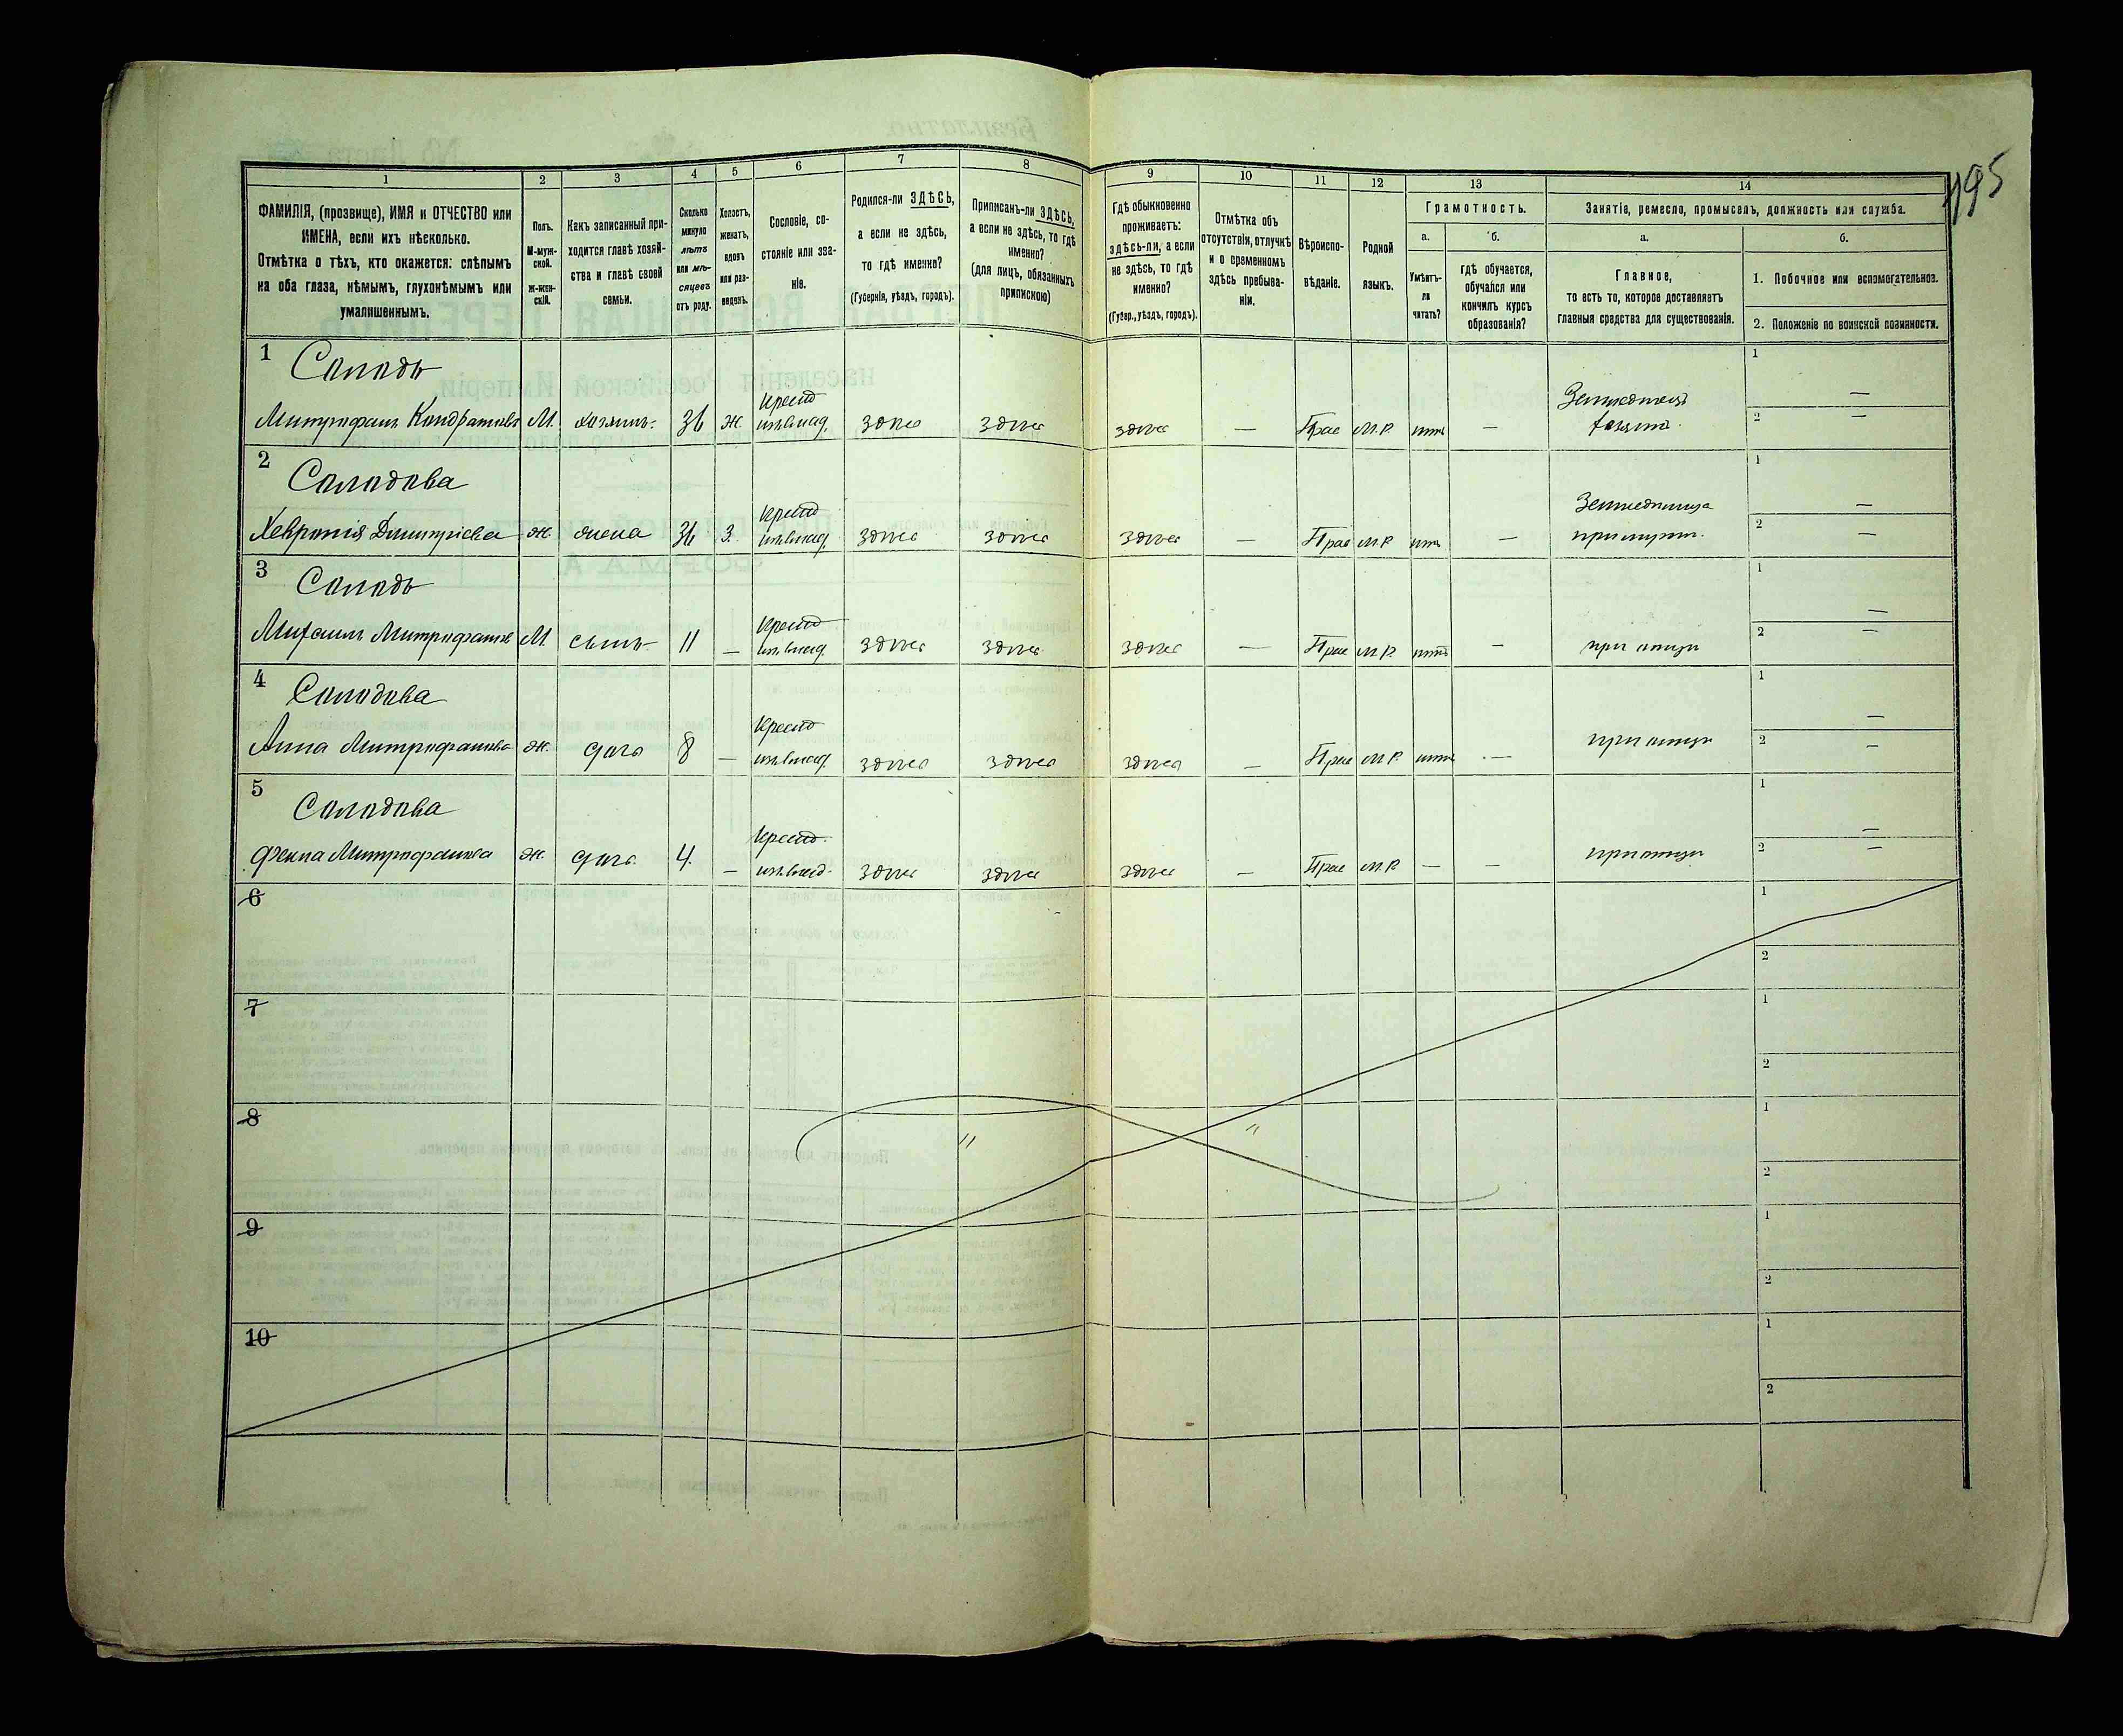 195
1
2
3
4
5
6
7
8
9
10
11
12
13
14
ФАМИЛІЯ, (прозвище), ИМЯ и ОТЧЕСТВО или
ИМЕНА, если ихъ нѣсколько.
Отмѣтка о тѣхъ, кто окажется: слѣпымъ
на оба глаза, нѣмымъ, глухонѣмымъ или
умалишеннымъ.
Полъ.
М-муж-
ской.
ж-жен-
скій.
Какъ записанный при-
ходится главѣ хозяй-
ства и главѣ своей
семьи.
Сколько
минуло
лѣтъ
или мѣ-
сяцевъ
отъ роду.
Холостъ,
женатъ,
вдовъ
или раз-
веденъ.
Сословіе, со-
стояніе или зва-
ніе.
Родился-ли ЗДѢСЬ,
а если не здѣсь,
то гдѣ именно?
(Губернія, уѣздъ, городъ).
Приписанъ-ли ЗДѢСЬ,
а если не здѣсь, то гдѣ
именно?
(для лицъ, обязанныхъ
припискою)
Гдѣ обыкновенно
проживаетъ:
здѣсь-ли, а если
не здѣсь, то гдѣ
именно?
(Губер., уѣздъ, городъ).
Отмѣтка объ
отсутствіи, отлучкѣ
и о временномъ
здѣсь пребыва-
ніи.
Вѣроиспо-
вѣданіе.
Родной
языкъ.
Грамотность.
а.
Умѣетъ-
ли
читать?
б.
гдѣ обучается,
обучался или
кончилъ курсъ
образованія?
Занятіе, ремесло, промыселъ, должность или служба.
а.
Главное,
то есть то, которое доставляетъ
главныя средства для существованія.
б.
1. Побочное или вспомогательное.
2. Положеніе по воинской повинности.
1
Солодъ
Митрофанъ Кондратовъ М. хозяинъ 36 ж. крест изъ влад. здѣсь здѣсь здѣсь — Прав М.Р. нѣтъ —
1 —
2 —
2
Солодова
Хевронія Димитріева ж. жена 36 З. крест изъ влад. здѣсь здѣсь здѣсь — Прав М.Р. нѣтъ —
1 —
2 —
3
Солодъ
Михаилъ Митрофановъ М. сынъ 11 — крест изъ влад. здѣсь здѣсь здѣсь — Прав М.Р. нѣтъ — при отцѣ
1 —
2 —
4
Солодова
Анна Митрофанова ж. дочь 8 — крест изъ влад. здѣсь здѣсь здѣсь — Прав М.Р. нѣтъ — при отцѣ
1 —
2 —
5
Солодова
Митрофанова ж. дочь 4. — крест. изъ влад. здѣсь здѣсь здѣсь — Прав М.Р. — — при отцѣ
1 —
2 —
6
1
2
7
1
2
8
1
2
9
1
2
10
1
2